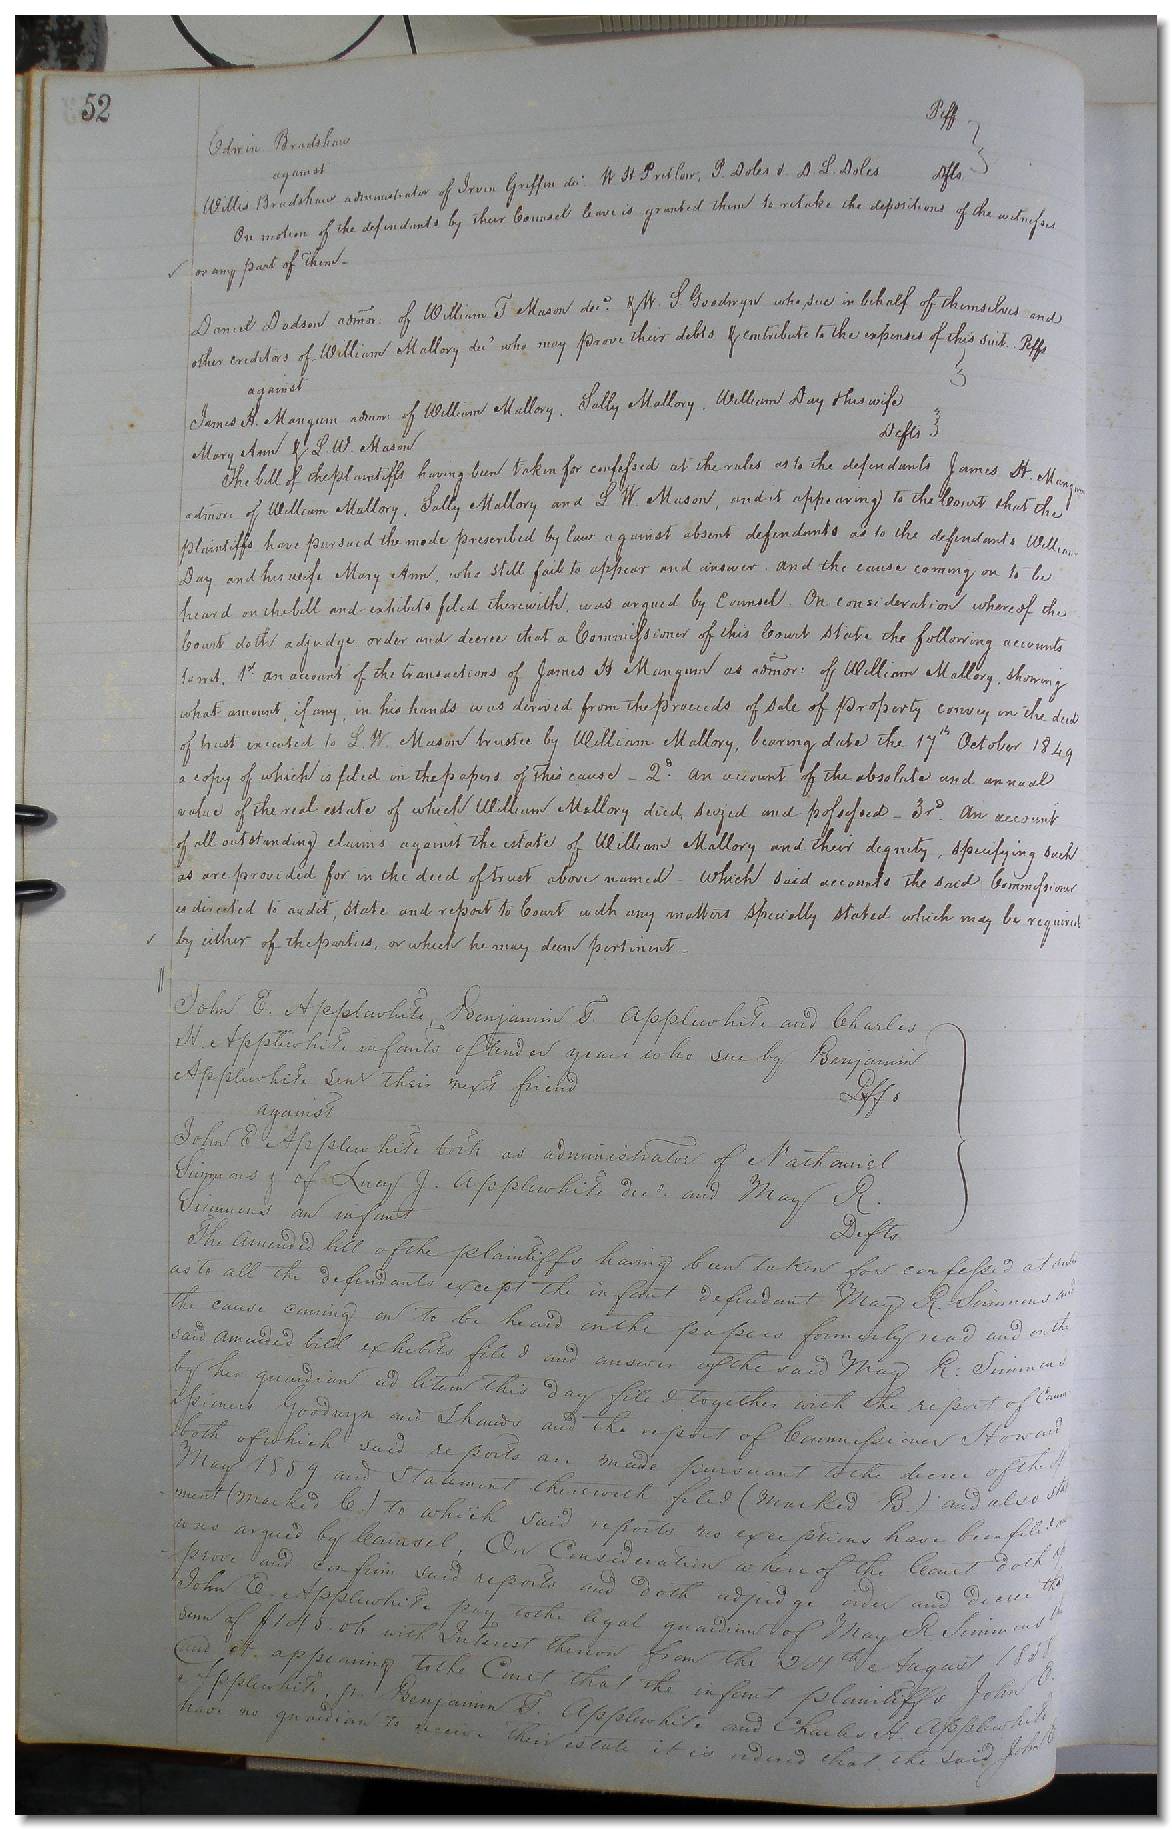 52
Edwin Bradshaw Plff
against
Willis Bradshaw administrator of Irvin Griffin dec. W H Pretlow, P. Doles & D. L. Doles Dfts
On motion of the defendants by their Counsel leave is granted them to retake the depositions of the witnesses
or any part of them -
Daniel Dodson admor. of William T Mason decd. & W. S. Goodwyn who sue in behalf of themselves and
other creditors of William Mallory decd who may prove their debts & contribute to the expenses of this suit. Plffs
against
James H. Mangum admor. of William Mallory, Sally Mallory, William Day & his wife
Mary Ann & L. W. Mason Defts
The bill of the plaintiffs having been taken for confessed at the rules as to the defendants James H. Mangum
admor. of William Mallory, Sally Mallory and L W. Mason, and it appearing to the Court that the
plaintiffs have pursued the mode prescribed by law against absent defendants as to the defendants William
Day and his wife Mary Ann, who still fail to appear and answer. and the cause coming on to be
heard on the bill and exhibits filed therewith, was argued by Counsel. On consideration whereof the
Court doth adjudge order and decree that a Commissioner of this Court state the following accounts
towit, 1st an account of the transactions of James H Mangum as admor: of William Mallory, showing
what amount, if any, in his hands was derived from the proceeds of sale of property convey in the deed
of trust executed to L. W. Mason trustee by William Mallory, bearing date the 17th October 1849
a copy of which is filed in the papers of this cause - 2d. An account of the absolute and annual
value of the real estate of which William Mallory died, seized and possessed - 3rd. An account
of all outstanding claims against the estate of William Mallory and their dignity, specifying such
as are provided for in the deed of trust above named - Which said accounts the said Commissioner
is directed to audit, state and report to Court with any matters specially stated which may be required
by either of the parties, or which he may deem pertinent -
John E. Applewhite, Benjamin T. Applewhite and Charles
H. Applewhite infants of tender years who sue by Benjamin
Applewhite senr their next friend Plffs
against
John E Applewhite both as administrator of Nathaniel
Simmons & of Lucy J. Applewhite decd. and May R.
Simmons an infant Defts
The amended bill of the plaintiffs having been taken for confessed at rules
as to all the defendants except the infant defendant May R. Simmons and
the cause coming on to be heard on the papers formerly read and on the
said amended bill exhibits filed and answer of the said May R. Simmons
by her guardian ad litem this day filed together with the report of Comm
issioners Goodwyn and Thomas and the report of Commissioner Howard
both of which said reports are made pursuant to the decree of the
May 1859 and Statement therewith filed (marked B.) and also state
ment (marked C.) to which said reports no exceptions have been filed and
was argued by Counsel. On Consideration whereof the Court doth ap
prove and confirm said reports and doth adjudge order and decree that
John E. Applewhite pay to the legal guardian of May R Simmons the
sum of $145.06 with Interest thereon from the 24th August 1858
(and it appearing to the Court that the infant plaintiffs John E.
Applewhite, jr. Benjamin T. Applewhite and Charles H. Applewhite
have no guardian to receive their estate it is ordered that the said John E